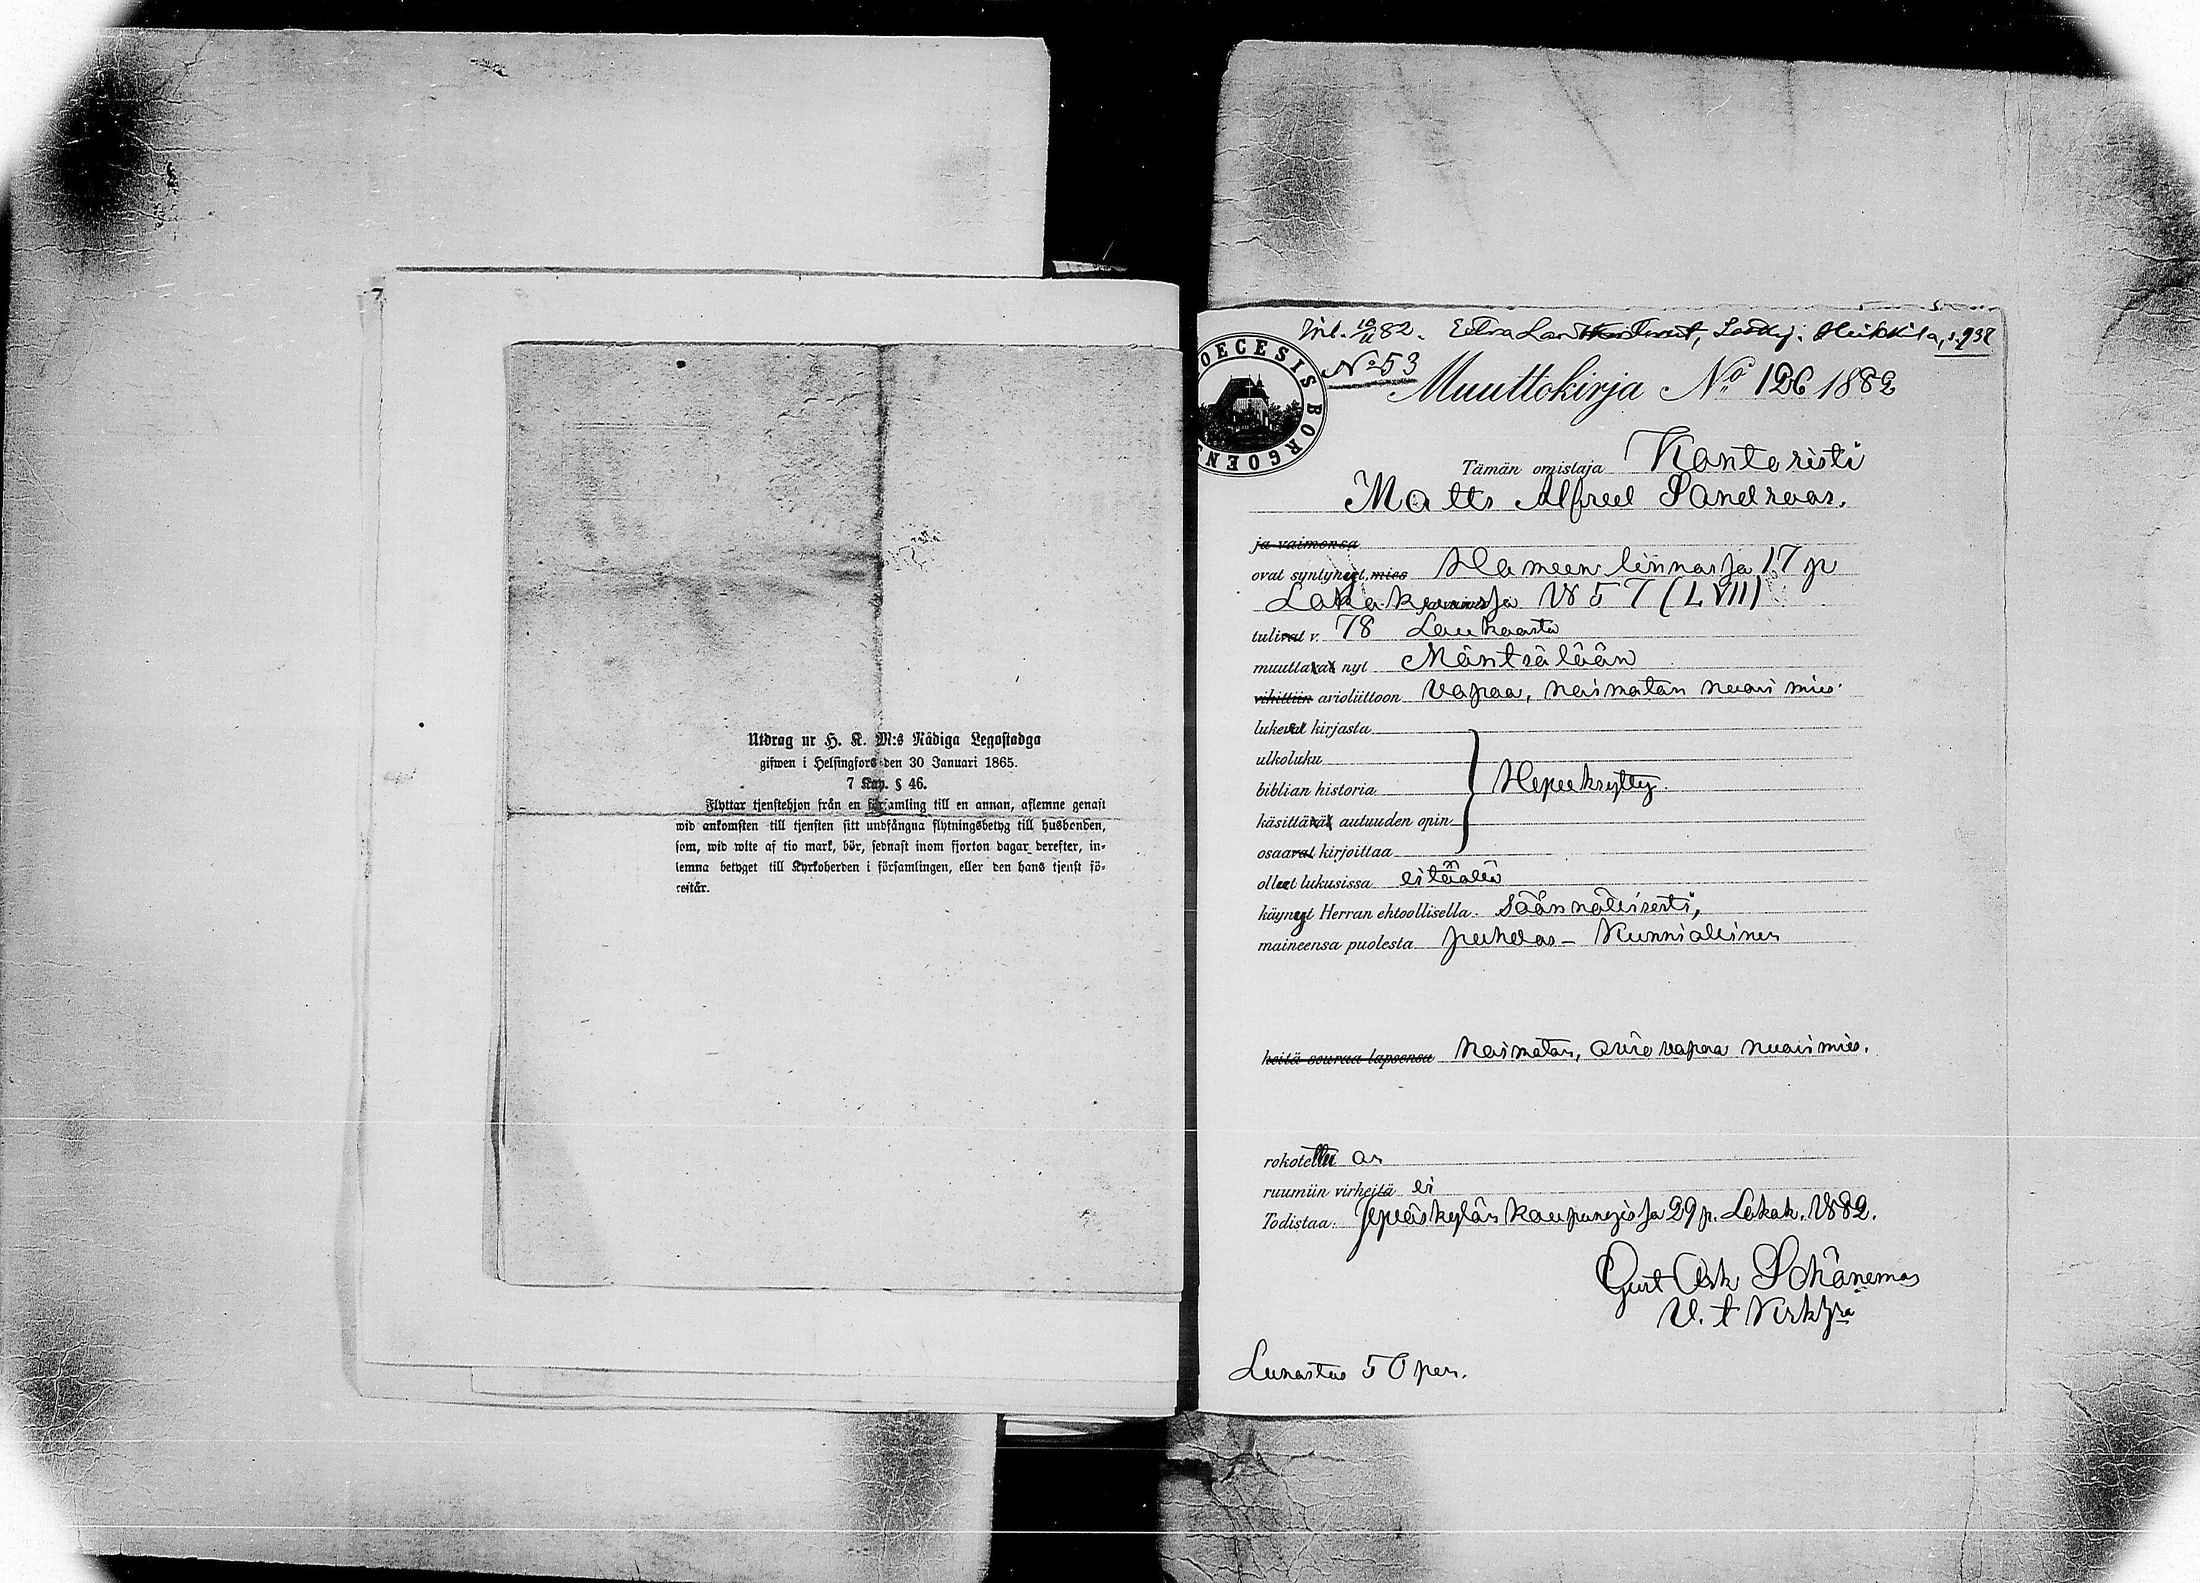 Utdrag ur H. K. M:s Nådiga Legostadga
gifwen i Helsingfors den 30 Januari 1865.
7 Kap. § 46.
Flyttar tjenstehjon från en församling till en annan, aflemne genast
wid ankomsten till tjensten sitt undfångna flyttningsbetyg till husbonden,
som, wid wite af tio mark, bör, sednast inom fjorton dagar derefter, in-
lemna betyget till Kyrkoherden i församlingen, eller den hans tjenst fö-
restår.
Inl. 10/11 82. Extra Heikkilä, s. 938
No 53
OECESIS BORGOEN
Muuttokirja No 126 1882
Tämän omistaja Kantoristi
Matts Alfred Sandroos.
ja vaimonsa
ovat syntynyt, mies Hämeenlinnassa 17 p
Lokakuussa 1857 (LVII)
tulivat v. 78 Laukaasta
muuttavat nyt Mäntsälään
vihittiin avioliittoon Vapaa, naimatan nuori mies.
lukevat kirjasta
ulkoluku
biblian historia Hyväksytty
käsittävät autuuden opin
osaavat kirjoittaa
olleet lukusissa
käynyt Herran ehtoollisella Säännöllisesti,
maineensa puolesta puhdas – Kunniallinen
heitä seuraa lapsensa Naimatan, avio vapaa nuori mies.
rokotettu on
ruumiin virheitä ei
Todistaa: Jyväskylän kaupungissa 29 p. Lokak. 1882.
Gust Schöneman
V. t Kirkhra
Lunastus 50 pen.